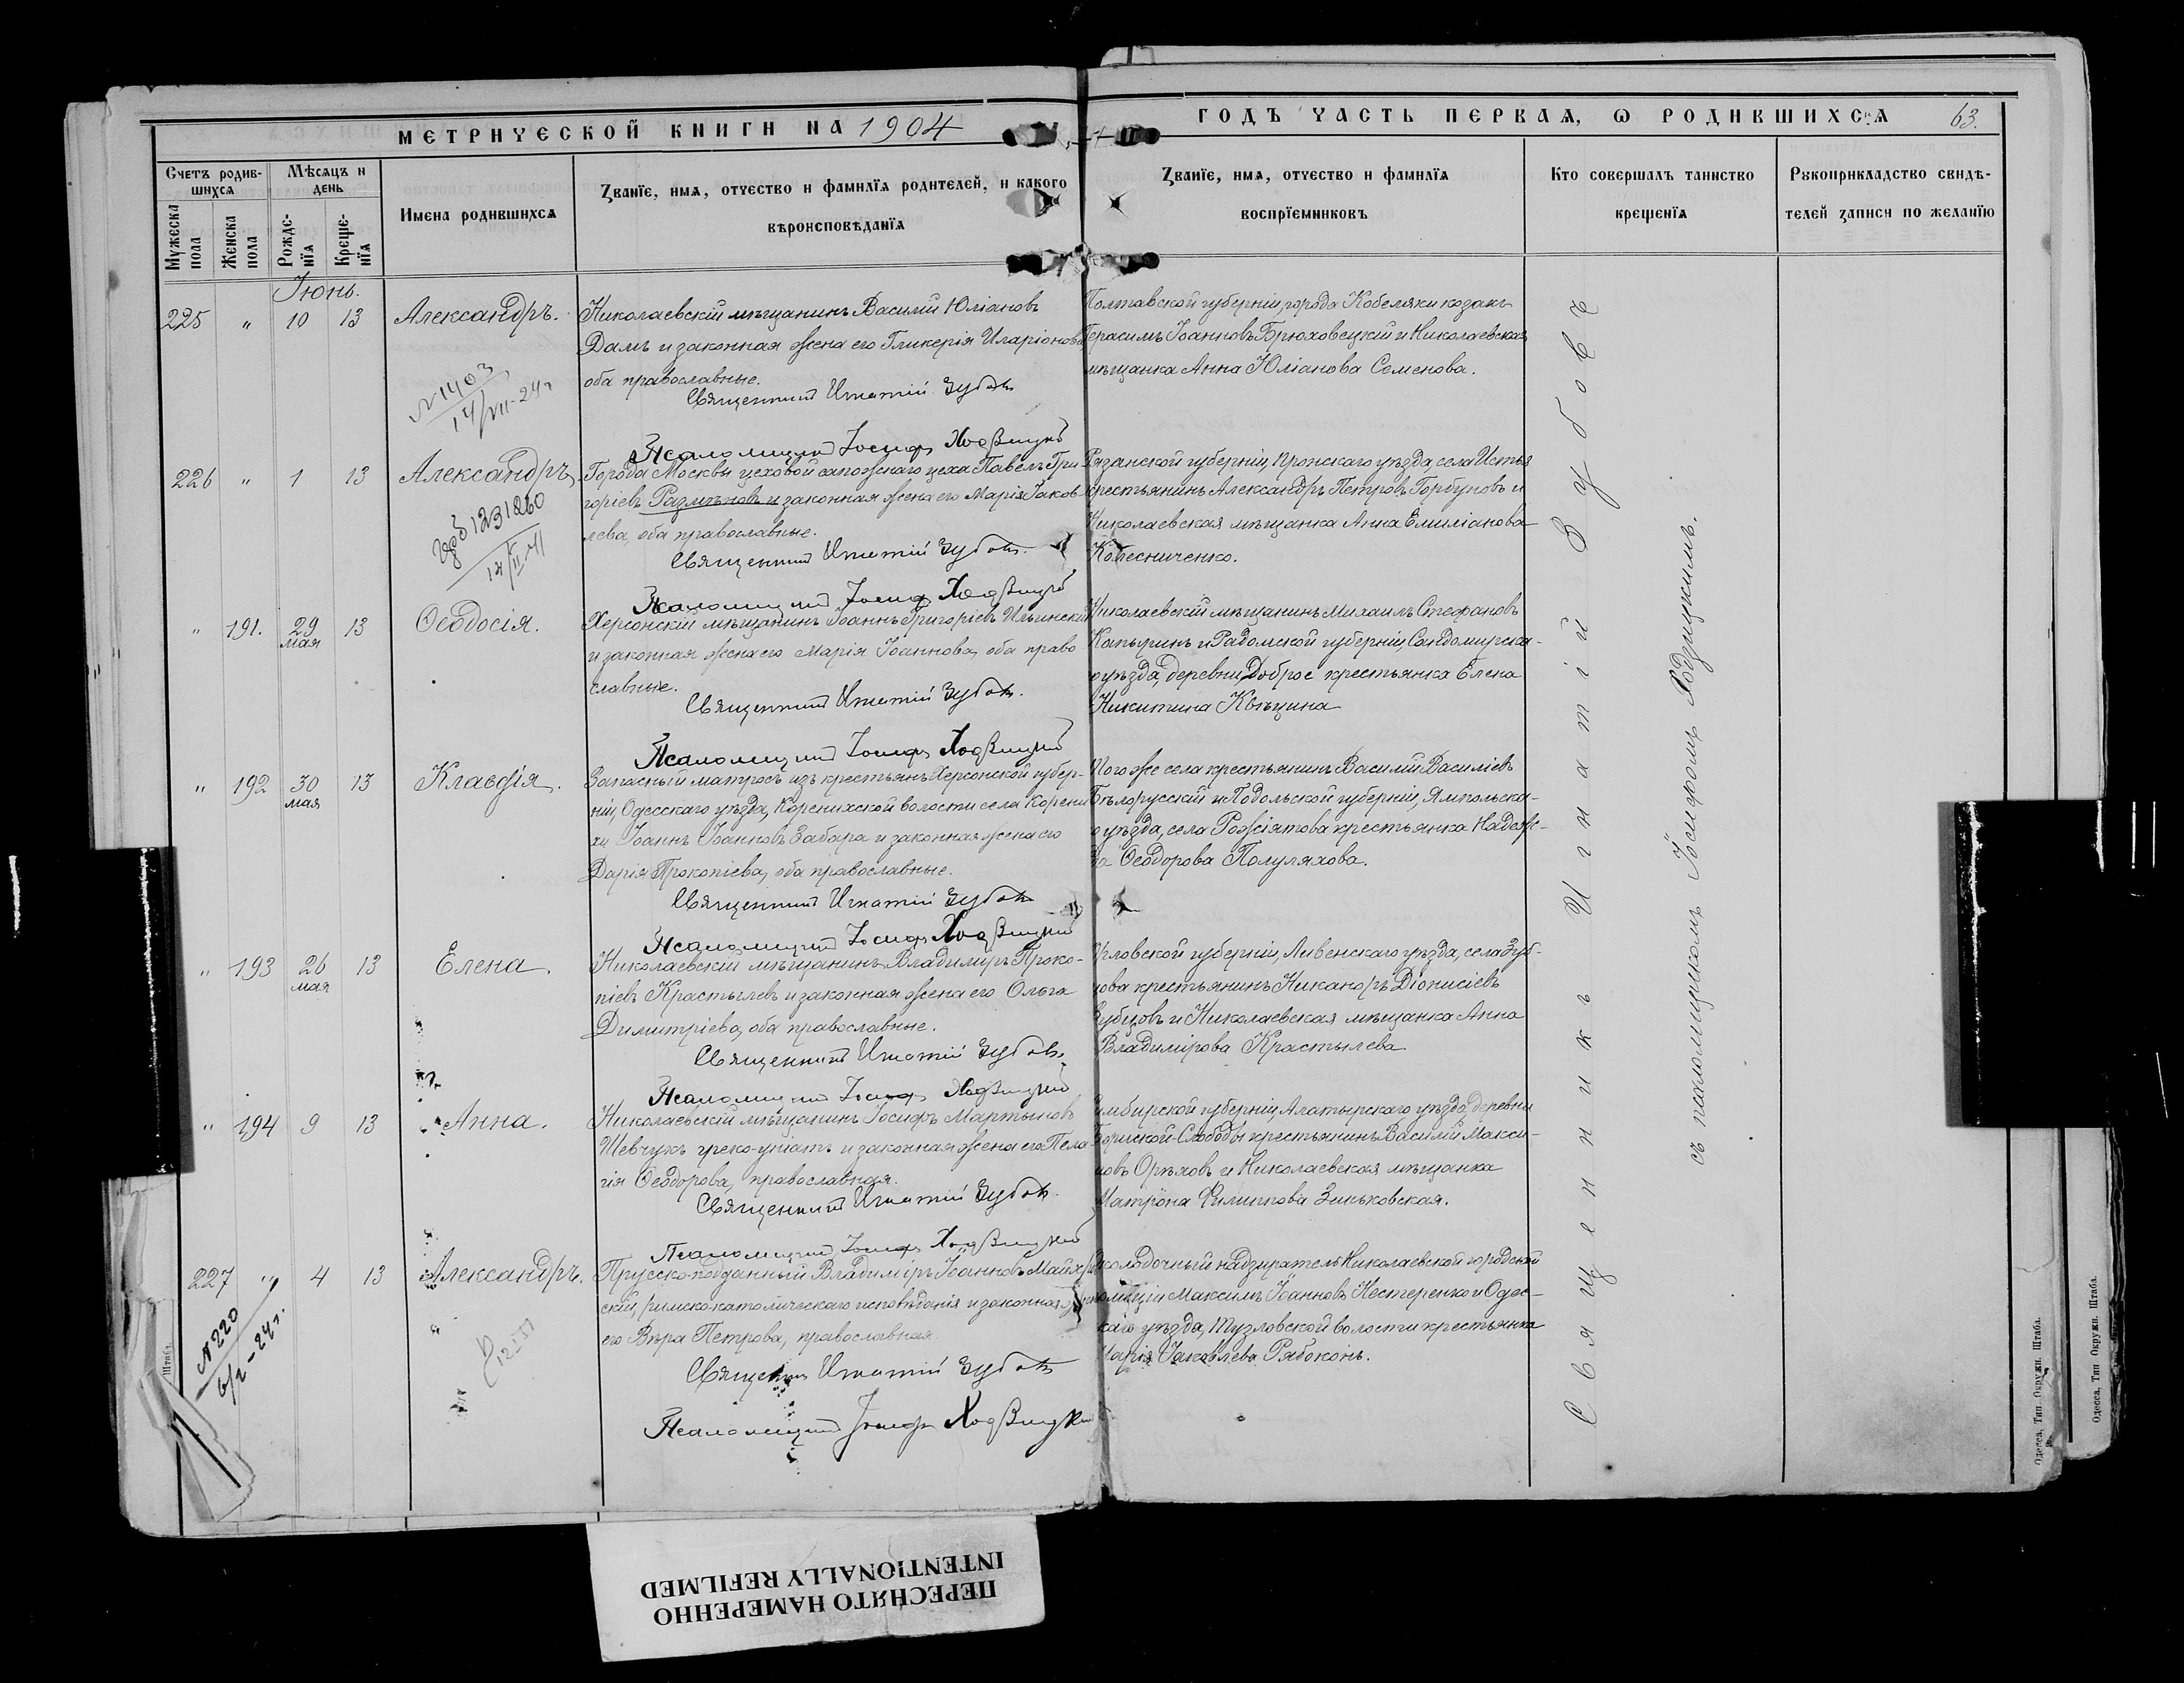 МЕТРИЧЕСКОЙ КНИГИ НА 1904
ГОДЪ ЧАСТЬ ПЕРВАЯ, Ѡ РОДИВШИХСЯ
63.
Счетъ родившихся
Мужеска пола
Женска пола
Мѣсяцъ и день
Рожденїя
Крещенїя
Имена родившихся
Званїе, имя, отчество и фамилїя родителей, и какого
вѣроисповѣданїя
Званїе, имя, отчество и фамилїя
воспрїемниковъ
Кто совершалъ таинство
крещенїя
Рукоприкладство свидѣ-
телей записи по желанїю
Іюнь.
225 " 10 13 Александръ.
Николаевскій мѣщанинъ Василій Юліановъ
Дамъ и законная жена его Гликерія Иларіонова
оба православные.
Священникъ Игнатій Зубовъ
Псаломщикъ Іосифъ Ходзицкій
Полтавской губерніи, города Кобеляки козакъ
Герасимъ Іоанновъ Брюховецкій и Николаевская
мѣщанка Анна Юліанова Семенова.
N 1403
14/VII-24г
226 " 1 13 Александръ
Города Москвы цеховой сапожнаго цеха Павелъ Гри
горіевъ Размѣновъ и законная жена его Марія Іаков
лева, оба православные.
Священникъ Игнатій Зубовъ.
Псаломщикъ Іосифъ Ходзицкій
Рязанской губерніи, Пронскаго уѣзда, села Истья
крестьянинъ Александръ Петровъ Горбуновъ и
Николаевская мѣщанка Анна Емиліанова
Колесниченко.
1231260
" 191. 29 мая 13 Ѳеодосія.
Херсонскій мѣщанинъ Іоаннъ Григоріевъ Ильинскій
и законная жена его Марія Іоаннова, оба право
славные.
Священникъ Игнатій Зубовъ.
Псаломщикъ Іосифъ Ходзицкій
Николаевскій мѣщанинъ Михаилъ Стефановъ
Капыринъ и Радомской губерніи, Сандомирска-
го уѣзда, деревни Доброе крестьянка Елена
Никитина Квѣцина
" 192 30 мая 13 Клавдія.
Запасный матросъ изъ крестьянъ Херсонской губер-
ніи, Одесскаго уѣзда, Коренихской волости села Корени
хи Іоаннъ Іоанновъ Забара и законная жена его
Дарія Прокопіева, оба православные.
Священникъ Игнатій Зубовъ
Псаломщикъ Іосифъ Ходзицкій
Того же села крестьянинъ Василій Василіевъ
Бѣлорусскій и Подольской губерніи, Ямпольска-
го уѣзда, села Рожіятова крестьянка Надеж-
да Ѳеодорова Полуляхова.
" 193 26 мая 13 Елена.
Николаевскій мѣщанинъ Владимиръ Проко-
піевъ Крастылевъ и законная жена его Ольга
Димитріева, оба православные.
Священникъ Игнатій Зубовъ.
Псаломщикъ Іосифъ Ходзицкій
Орловской губерніи, Ливенскаго уѣзда, села Зуб-
цова крестьянинъ Никаноръ Діонисіевъ
Зубцовъ и Николаевская мѣщанка Анна
Владимірова Крастылева
" 194 9 13 Анна.
Николаевскій мѣщанинъ Іосифъ Мартыновъ
Шевчукъ греко-уніатъ и законная жена его Пела
гія Ѳеодорова, православная.
Священникъ Игнатій Зубовъ.
Псаломщикъ Іосифъ Ходзицкій
Симбирской губерніи, Алатырскаго уѣзда, деревни
Слободы крестьянинъ Василій Макси-
мовъ Орѣховъ и Николаевская мѣщанка
Матрона Филиппова Зиньковская.
227 " 4 13 Александръ.
Прусско-подданный Владиміръ Іоанновъ
скій, римско-католическаго исповѣданія и законная жена
его Вѣра Петрова, православная
Священникъ Игнатій Зубовъ
Псаломщикъ Іосифъ Ходзицкій
Околодочный надзиратель Николаевской городской
полиціи Максимъ Іоанновъ Нестеренко и Одес-
скаго уѣзда, Тузловской волости крестьянка
Марія Іаковлева Рябоконь.
N 220
6/I-24г.
Священникъ Игнатій Зубовъ
съ псаломщикомъ Іосифомъ Ходзицкимъ.
Одесса, Тип. Окружн. Штаба.
Одесса, Тип. Окружн. Штаба.
Штаба.
ПЕРЕСНЯТО НАМЕРЕННО
INTENTIONALLY REFILMED